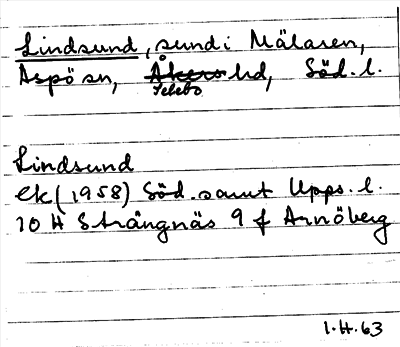 Lindsund, sund i Mälaren,
Aspö sn, Åkers hd, Söd. l.
Selebo
Lindsund
Ek (1958) Söd. samt Upps. l.
10 H Strängnäs 9 f Arnöberg
1.H.63